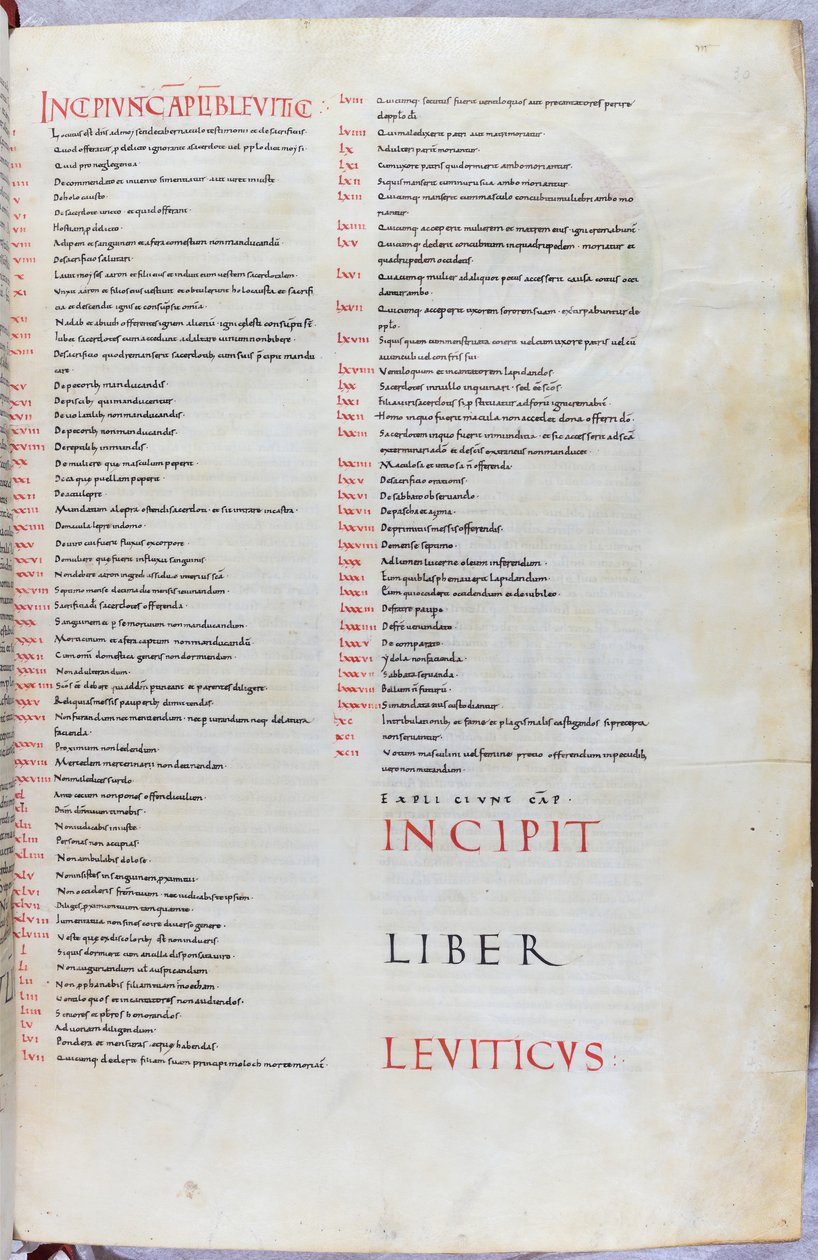 INCIPIUNT CAPL LIB LEVITICI
I Locutus est dns ad moysen de tabernaculo testimonii et de sacrificiis.
II Quod offeratur p delicto ignorante a sacerdote vel pplo dicit moysi.
III Quid pro neglegentia
IIII De commendato et invento si mentiatur aut iuret iniuste
V De holocausto.
VI De sacerdote uncto et quid offerant.
VII Hostiam p delicto.
VIII Adipem et sanguinem et a fera comestum non manducandū.
VIIII De sacrificio salutari.
X Lavit moyses aaron et filios eius et induit eum vestem sacerdotalem.
XI Unxit aaron et filios eius vestivit et obtulerunt holocausta et sacrifi
cia et descendit ignis et consūpsit omīa.
XII Nadab et abiuth offerentes ignem alienū igni celesti consumpti sē.
XIII Iubet sacerdotes cum accedunt ad altare vinum non bibere.
XIIII De sacrificio quod remanserit sacerdotib; cum suis p̄cipit mandu
care.
XV De pecorib; manducandis.
XVI De piscib; qui manducentur.
XVII De volatilib; non manducandis.
XVIII De pecorib; non manducandis.
XVIIII De reptilib; inmundis.
XX De muliere quę masculum peperit.
XXI De ea quę puellam peperit.
XXII De tactu leprę.
XXIII Mundatum a lepra ostendi sacerdoti et sic intrare in castra.
XXIIII De macula leprę in domo.
XXV De viro cui fuerit fluxus ex corpore.
XXVI De muliere quę fuerit in fluxu sanguinis
XXVII Non debere aaron ingredi assiduo interius scā.
XXVIII Septimo mense decima die mensis ieiunandum.
XXVIIII Sacrificia di sacerdotes offerenda.
XXX Sanguinem et p se mortuum non manducandum.
XXXI Morticinum et a fera captum non manducandū.
XXXII Cum omi domestica generis non dormiendum.
XXXIII Non adulterandum.
XXXIIII Scos eē debere qui ad dm̄ pertineant et parentes diligere.
XXXV Reliquias messis pauperib; dimittendis.
XXXVI Non furandum nec mentiendum. nec p iurandum neq; delatura
facienda.
XXXVII Proximum non ledendum.
XXXVIII Mercedem mercennarii non detinendam.
XXXVIIII Non maledices surdo.
XL Ante cecum non pones offendiculum.
XLI Dnm dm tuum timebis.
XLII Non iudicabis iniuste.
XLIII Personas non accipias.
XLIIII Non ambulabis dolose.
XLV Non insistes in sanguinem pximi tui.
XLVI Non occideris frem tuum. nec vindicabis te ipsum.
XLVII Diliges pximum tuum tamquam te.
XLVIII Iumenta tua non sines coire diverso genere.
XLVIIII Veste quę ex discolorib; est non indueris.
L Si quis dormierit cum ancilla disponsata viro.
LI Non auguriandum ut auspicandum
LII Non pphanabis filiam tuam in moecham.
LIII Ventiloquos et incantatores non audiendos.
LIIII Seniores et pbros honorandos.
LV Advenam diligendum.
LVI Pondera et mensuras ęquę habendas.
LVII Quicumq; dederit filiam suam principi moloch morte moriat.
LVIII Quicumq; secutus fuerit ventiloquos aut precantatores perire
de pplo di
LVIIII Qui maledixerit patri aut matri moriatur.
LX Adulteri pariter moriantur.
LXI Cum uxore patris qui dormierit ambo moriantur.
LXII Si quis manserit cum nuru sua ambo moriantur
LXIII Quicumq; manserit cum masculo concubitu muliebri ambo mo
riantur.
LXIIII Quicumq; acceperit mulierem et matrem eius igni cremabunt
LXV Quicumq; dederit concubitum in quadrupedem. moriatur et
quadrupedem occidetis.
LXVI Quacumq; mulier ad aliquot pecus accesserit causa coitus occi
dantur ambo.
LXVII Quicumq; acceperit uxorem sororem suam. extirpabuntur de
pplo.
LXVIII Si quis quem cum menstruata coierit vel cum uxore patris vel cū
avunculi vel con fris sui
LXVIIII Ventiloquum et incantatorem lapidandos.
LXX Sacerdotes in nullo inquinari. sed eē scos.
LXXI Filia viri sacerdotis si p stituatur ad forū igni cremabit.
LXXII Homo in quo fuerit macula non accedet dona offerri dō.
LXXIII Sacerdotem in quo fuerit inmunditia. et sic accesserit ad scā
exterminari a dō et de scis extraneus non manducet.
LXXIIII Maculosa et vitiosa n̄ offerenda.
LXXV De sacrificio orationis.
LXXVI De sabbato observando.
LXXVII De pascha et azima.
LXXVIII De primitiis messis offerendis.
LXXVIIII De mense septimo.
LXXX Ad lumen lucerne oleum inferendum.
LXXXI Eum qui blasphemaverit lapidandum.
LXXXII Eum qui occiderit occidendum et de iubileo.
LXXXIII De fratre paupe.
LXXXIIII De fre venundato.
LXXXV De comparato.
LXXXVI ydola non facienda.
LXXXVII Sabbata servanda.
LXXXVIII Bellum n̄ futurū.
LXXXVIIII Si mandata eius custodiantur.
XC In tribulationib; et fame et plagis malis castigandos si precepta
XCI non serventur.
XCII Votum masculini vel feminę pretio offerendum in pecudib;
vero non mutandum.
EXPLICIUNT CAP.
INCIPIT
LIBER
LEVITICVS